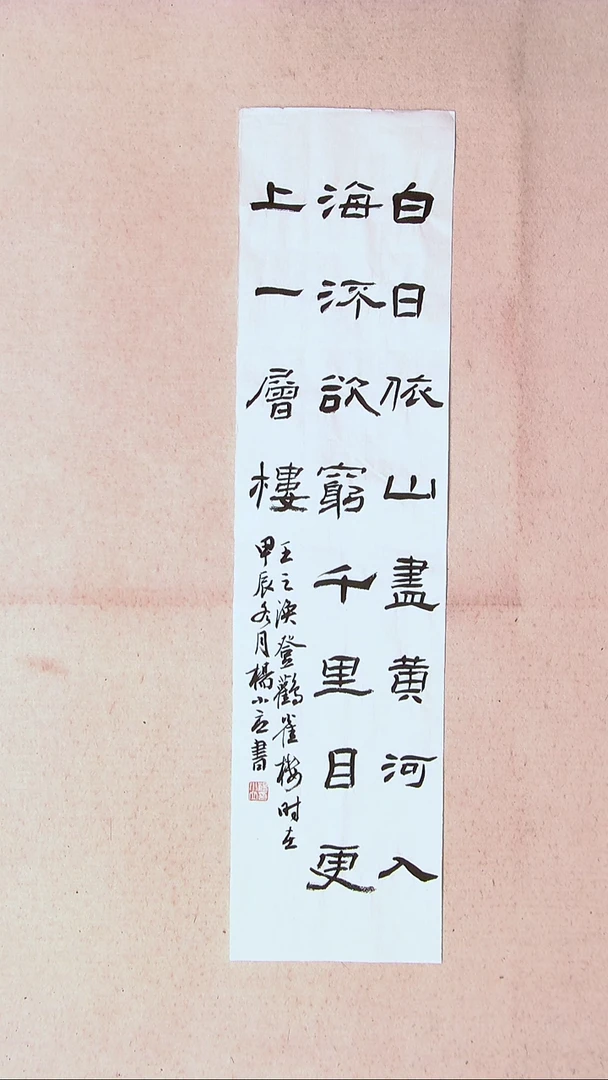 白日依山盡黄河入
海流欲窮千里目更
上一層樓
王之渙登鸛雀楼时在
甲辰冬月楊小 書